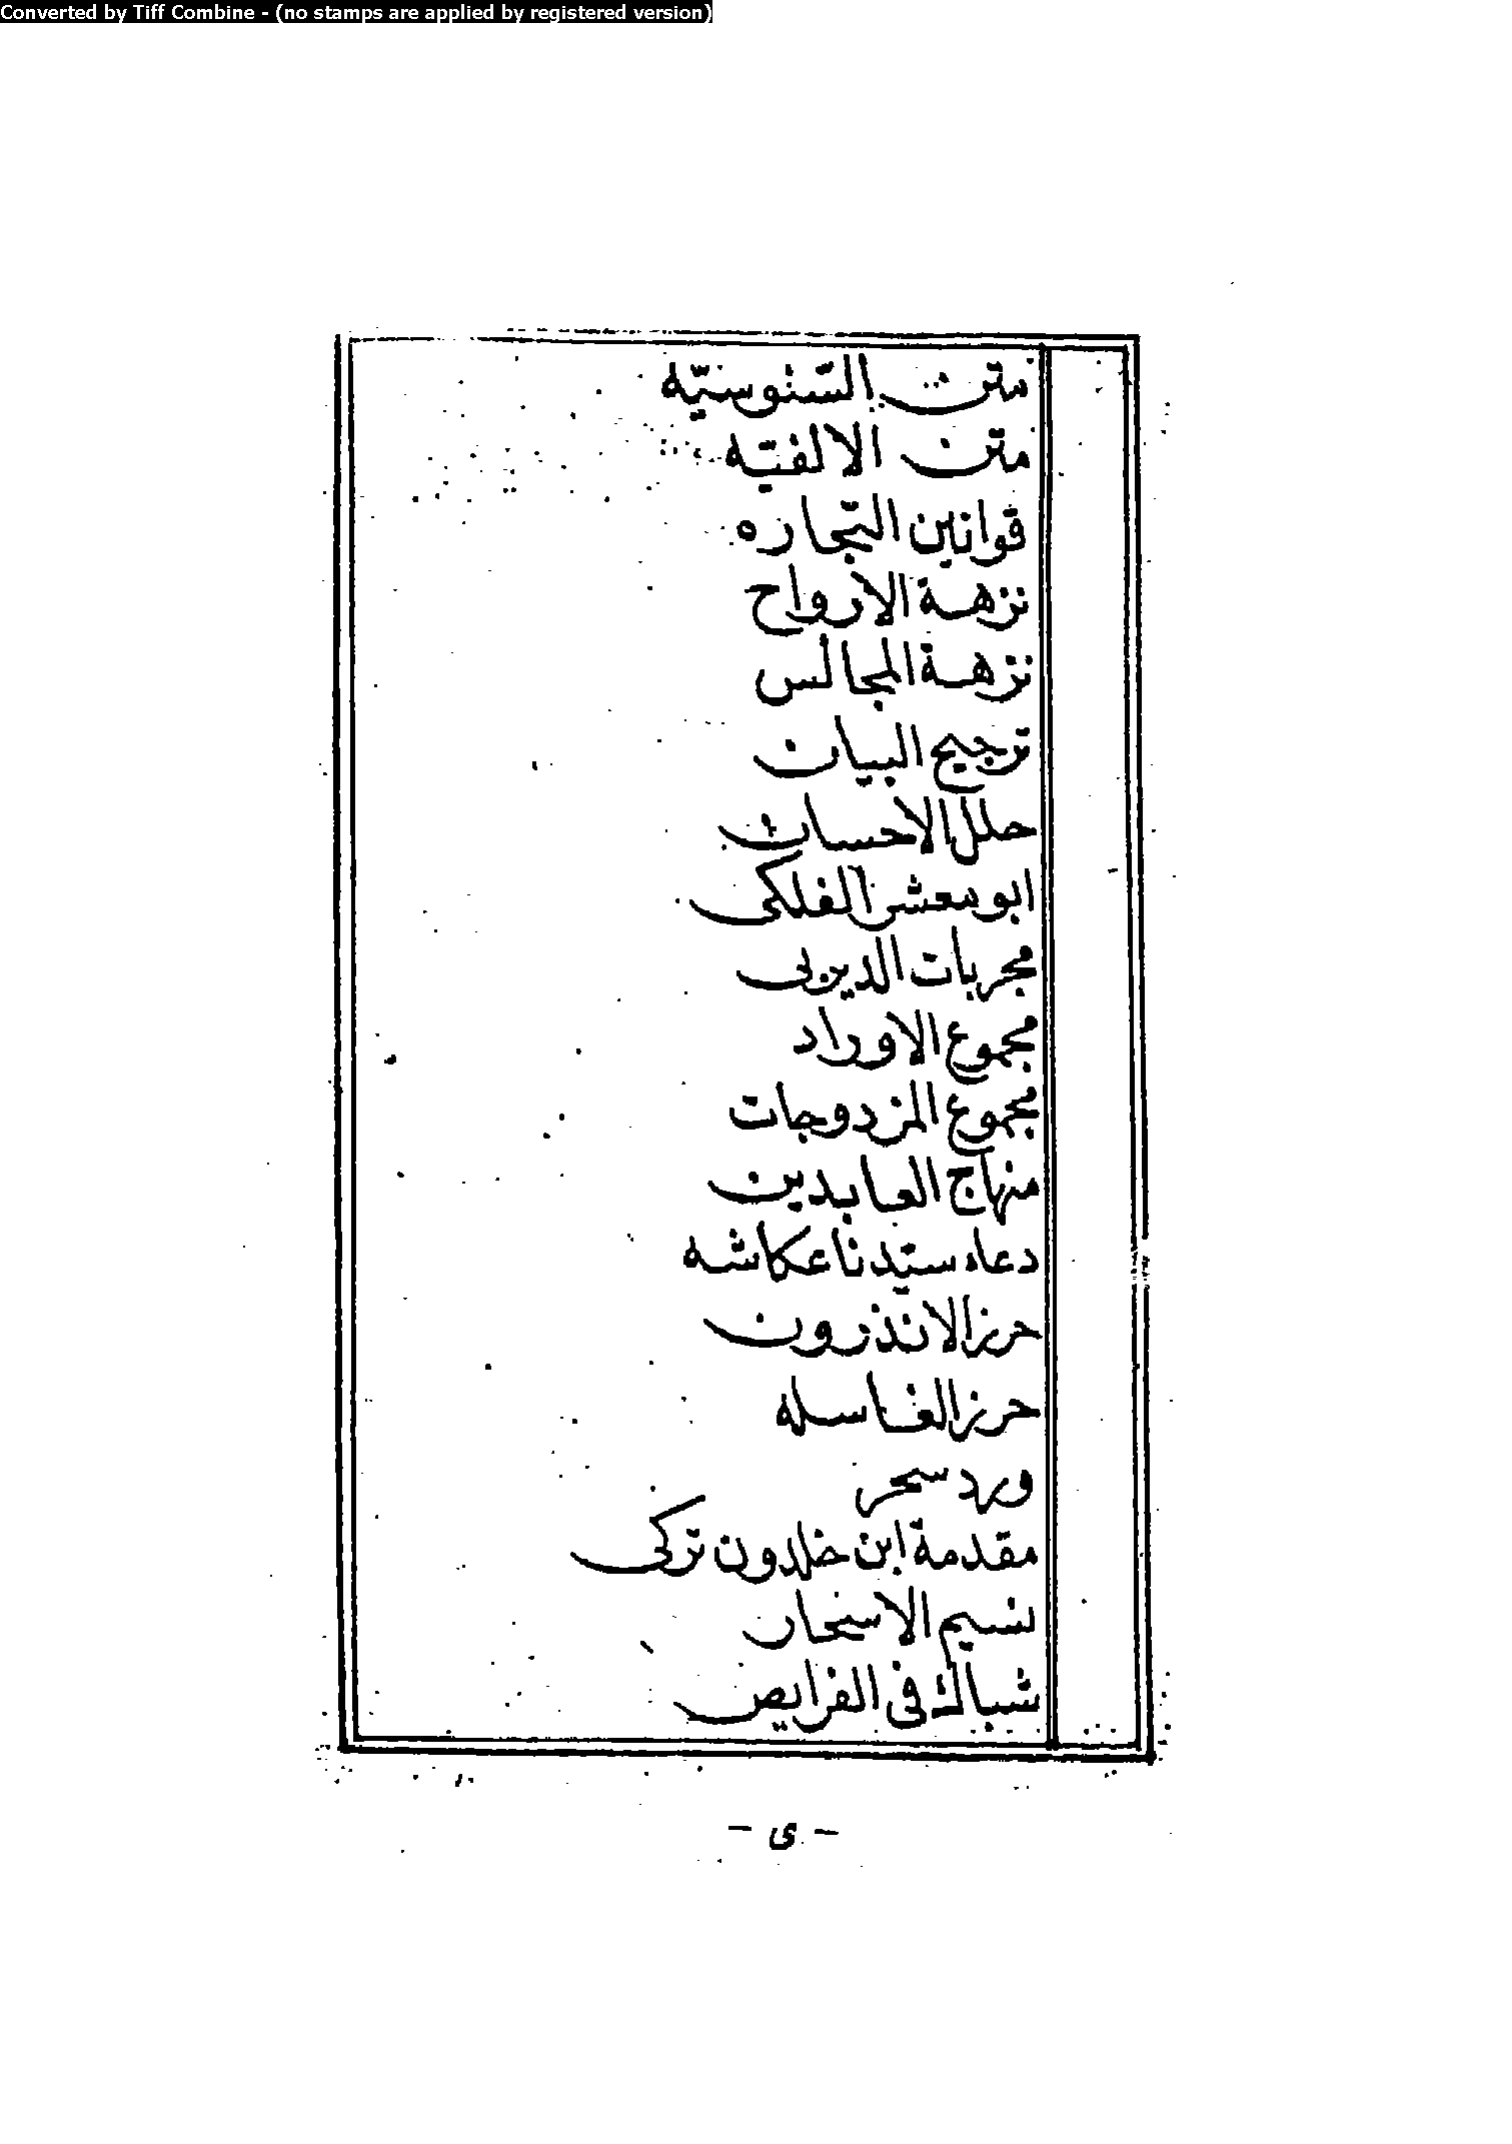 Converted by Tiff Combine - (no stamps are applied by registered version)
متن السّنوسيّه
متن الالفيّه
قوانين التّجاره
نزهة الارواح
نزهة المجالس
ترجيح البيات
حلل الاحسان
ابو معشر الفلكى
مجربات الديربى
مجموع الاوراد
مجموع المزدوجات
منهاج العابدين
دعاء سيّدنا عكاشه
حرز الاندرون
حرز الغاسله
ورد سحر
مقدمة ابن خلدون تركى
نسيم الاسحار
شباك فى الفرايض
- ى -